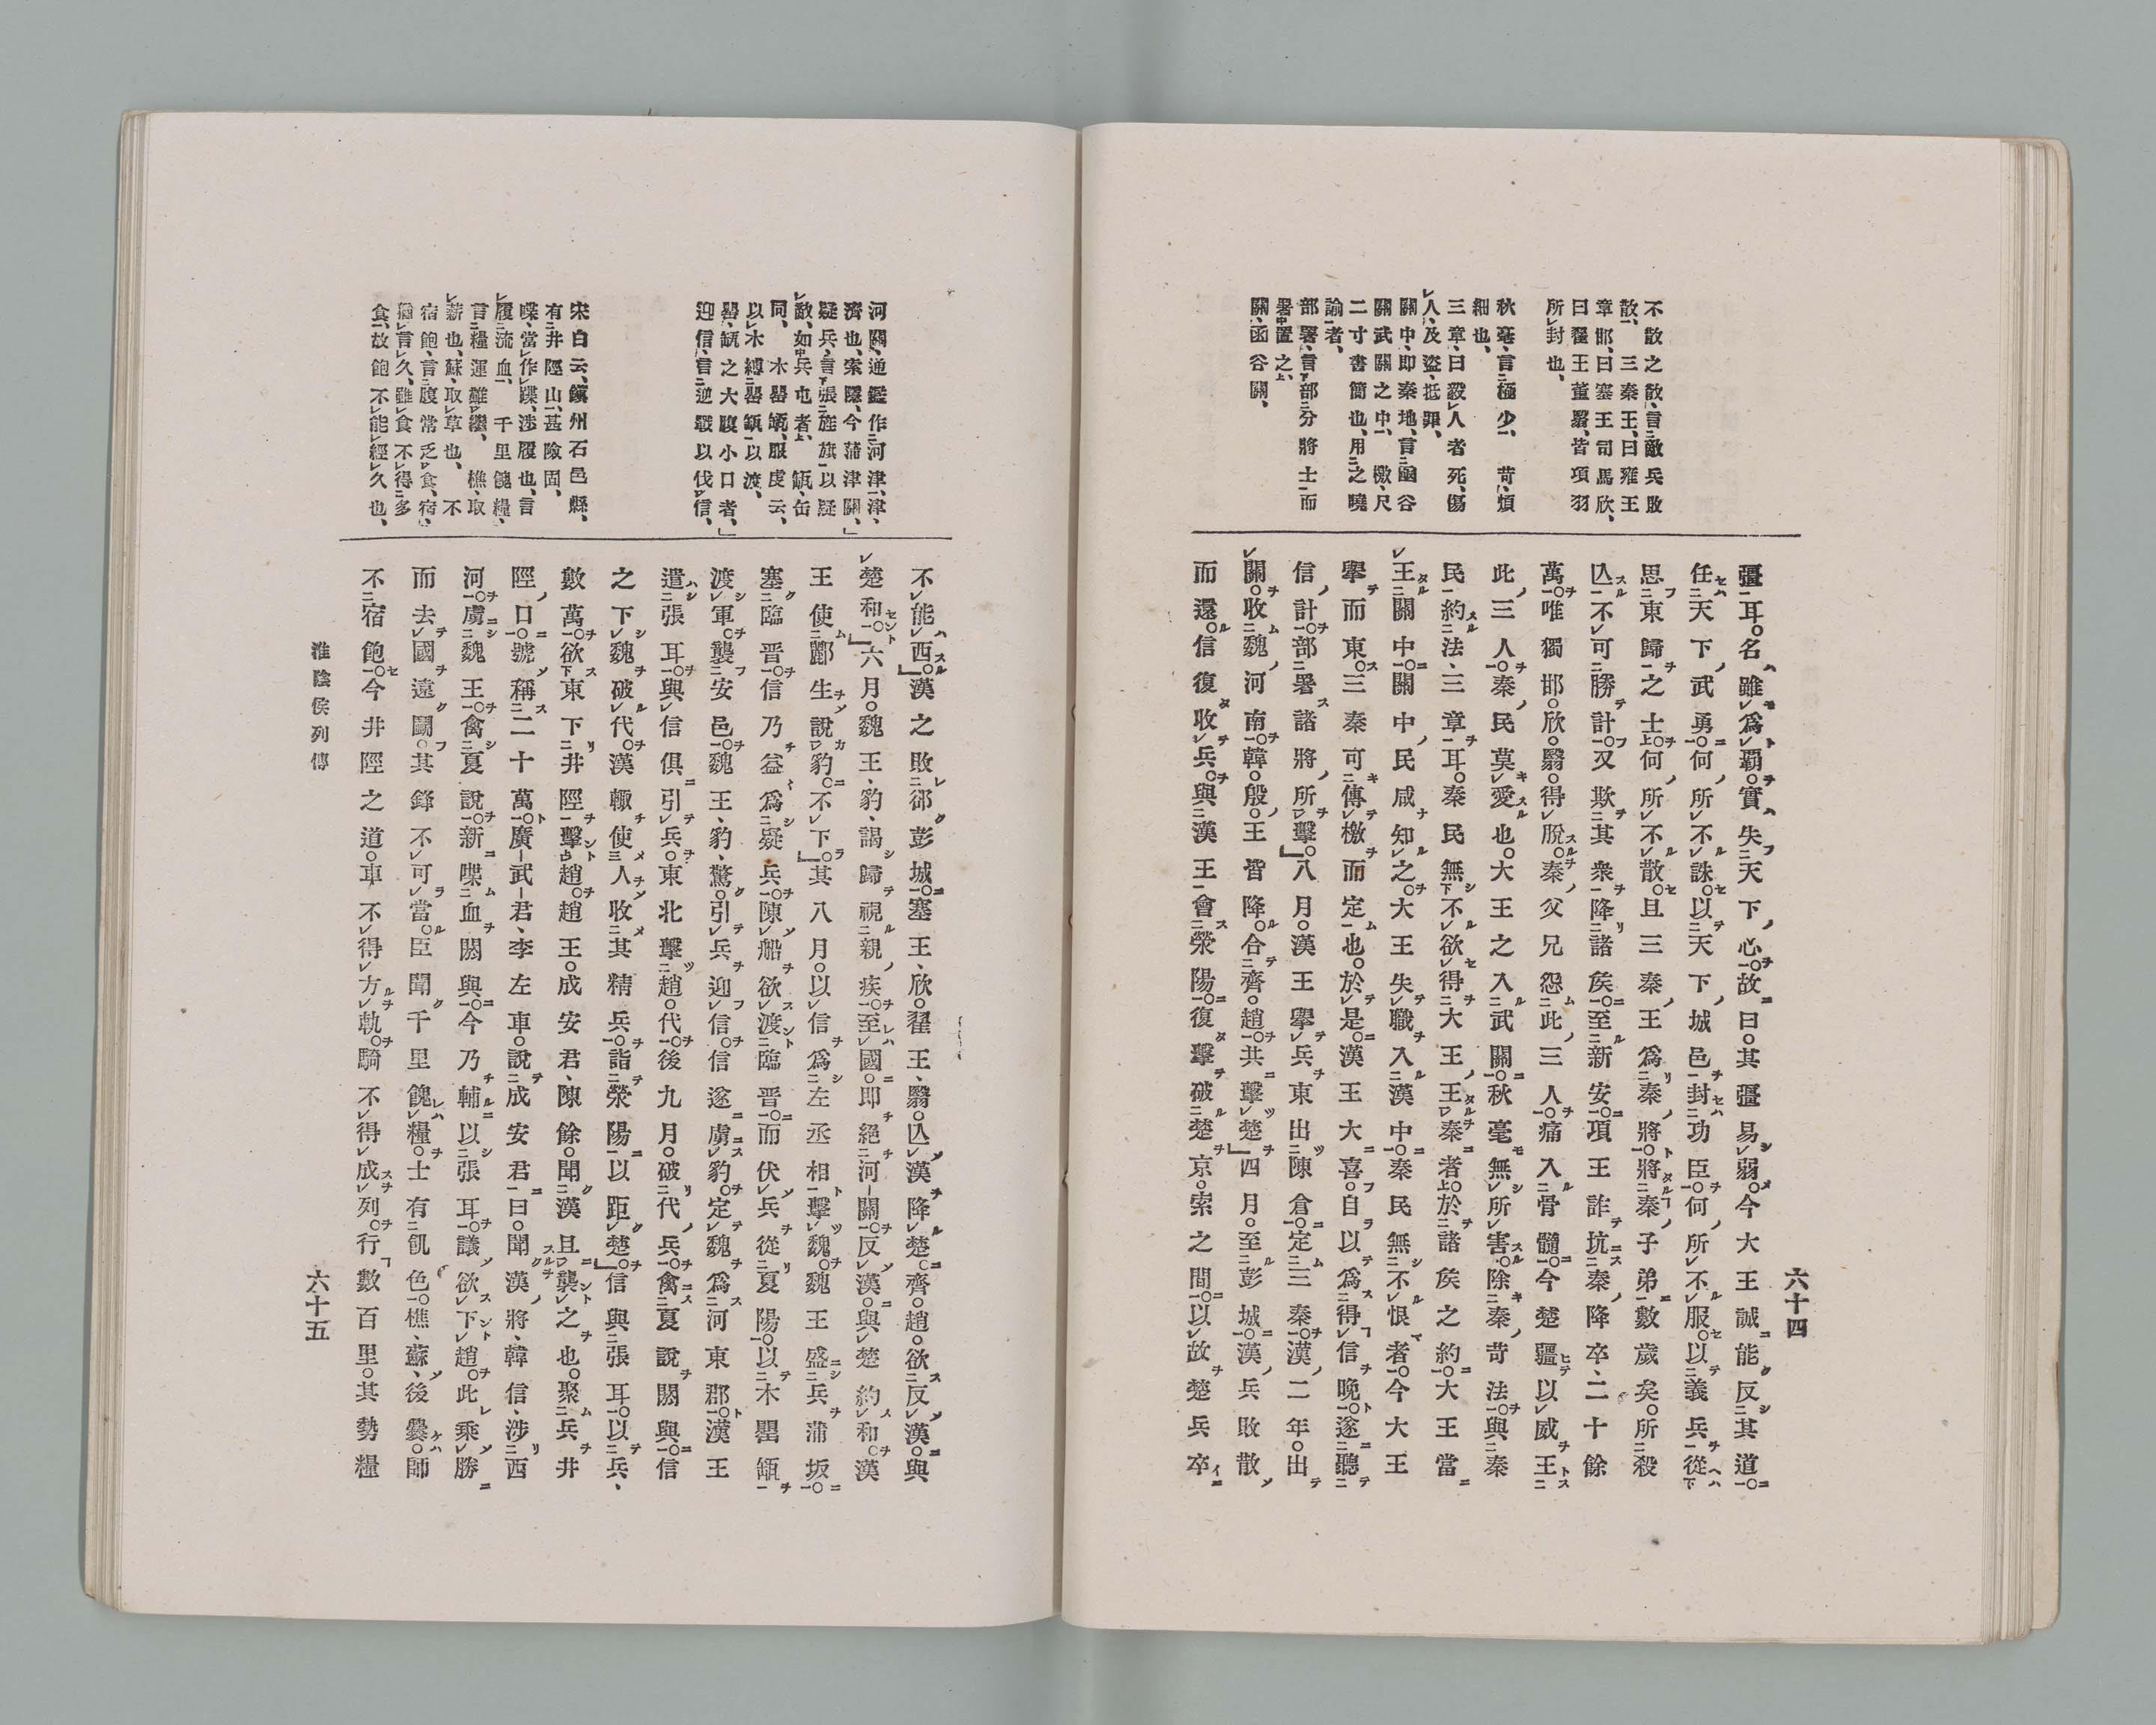 不散之散、言敵兵敗
散、三秦王、曰雍王
章邯、曰塞王司馬欣、
曰翟王董翳、皆項羽
所封也、
秋毫、言極少、苛、煩
細也、
三章、曰殺人者死、傷
人、及盜、抵罪、
關中、即秦地、言函谷
關武關之中、檄、尺
二寸書簡也、用之曉
諭者、
部署、言部分將士而
署置之、
關、函谷關、
彊耳。名雖爲覇。實失天下心。故曰。其彊易弱。今大王誠能反其道。
任天下武勇。何所不誅。以天下城邑封功臣。何所不服。以義兵從
思東歸之士。何所不散。且三秦王爲秦將。將秦子弟數歲矣。所殺
亾不可勝計。又欺其衆降諸矦。至新安。項王詐坑秦降卒、二十餘
萬。唯獨邯。欣。翳。得脫。秦父兄怨此三人。痛入骨髓。今楚彊以威王
此三人。秦民莫愛也。大王之入武關。秋毫無所害。除秦苛法。與秦
民約法、三章耳。秦民無不欲得大王王秦者。於諸矦之約。大王當
王關中。關中民咸知之。大王失職入漢中。秦民無不恨者。今大王
擧而東。三秦可傳檄而定也。於是。漢王大喜。自以爲得信晚。遂聽
信計。部署諸將所擊。」八月。漢王擧兵東出陳倉。定三秦。漢二年。出
關。收魏河南。韓。殷。王皆降。合齊。趙。共擊楚。」四月。至彭城。漢兵敗散
而還。信復收兵。與漢王會滎陽。復擊破楚京。索之間。以故楚兵卒
六十四
河關、通鑑作河津、津、
濟也、索隱、今蒲津關、」
疑兵、言張旌旗以疑
敵、如兵屯者、缻、缶
同、木罌缻、服虔云、
以木縛罌缻以渡、
罌、缻之大腹小口者、」
迎信、言逆戰以伐信、
宋白云、鎭州石邑縣、
有井陘山、甚險固、
喋、當作蹀、涉履也、言
履流血、千里餽糧、
言糧運難繼、樵、取
薪也、蘇、取草也、不
宿飽、言腹常乏食、宿、
猶言久、雖食不得多
食、故飽不能經久也、
不能西。」漢之敗郤彭城。塞王、欣。翟王、翳。亾漢降楚。齊。趙。欲反漢。與
楚和。」六月。魏王、豹、謁歸視親疾。至國。即絕河關。反漢。與楚約和。漢
王使酈生說豹。不下。」其八月。以信爲左丞相擊魏。魏王盛兵蒲坂。
塞臨晋。信乃益爲疑兵。陳船欲渡臨晋。而伏兵從夏陽。以木罌缻
渡軍。襲安邑。魏王、豹、驚。引兵迎信。信遂虜豹。定魏爲河東郡。漢王
遣張耳。與信俱引兵。東北擊趙。代。後九月。破代兵。禽夏說閼與。信
之下魏破代。漢輙使人收其精兵。詣滎陽以距楚。」信與張耳。以兵、
數萬。欲東下井陘擊趙。趙王。成安君、陳餘。聞漢且襲之也。聚兵井
陘口。號稱二十萬。廣武君、李左車。說成安君曰。聞漢將、韓信、涉西
河。虜魏王。禽夏說。新喋血閼與。今乃輔以張耳。議欲下趙。此乘勝
而去國遠鬭。其鋒不可當。臣聞千里餽糧。士有飢色。樵、蘇、後爨。師
不宿飽。今井陘之道。車不得方軌。騎不得成列。行數百里。其勢糧
淮陰侯列傳
六十五